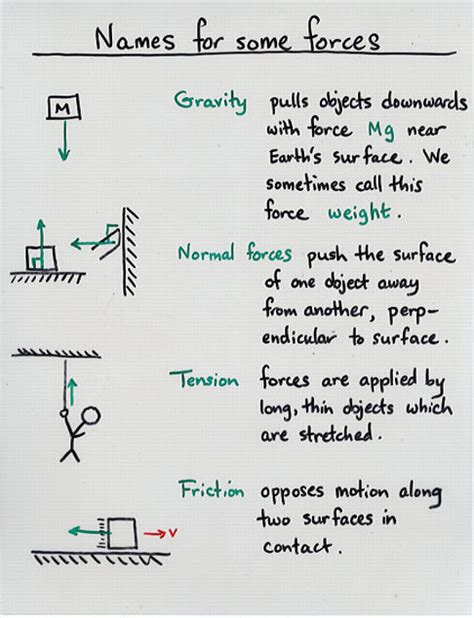 Names for some forces
M
Gravity pulls objects downwards
with force Mg near
Earth's surface. We
sometimes call this
force weight.
Normal forces push the surface
of one object away
from another, perp-
endicular to surface.
Tension forces are applied by
long, thin objects which
are stretched.
Friction opposes motion along
two surfaces in
contact.
v